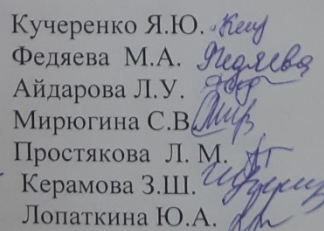 Кучеренко Я.Ю.
Федяева М.А. Федяева
Айдарова Л.У.
Мирюгина С.В
Простякова Л. М.
Керамова З.Ш.
Лопаткина Ю.А.